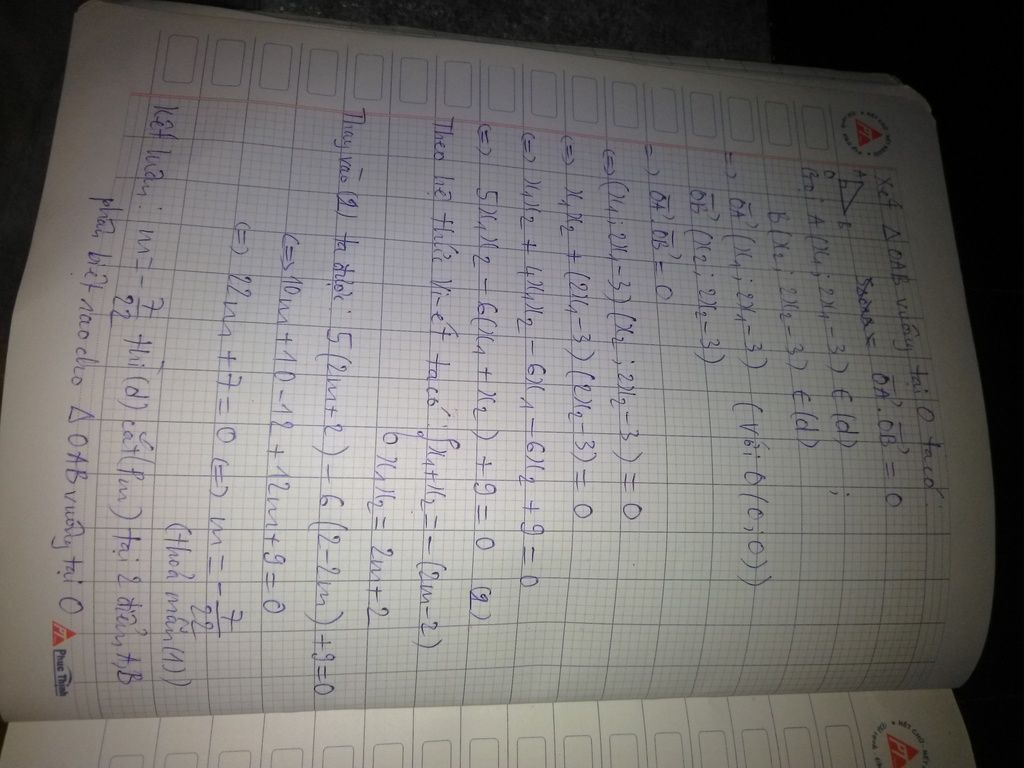 Xét Δ OAB vuông tại O ta có:
OA⃗.OB⃗ = 0
A
B
O
Gọi A (x₁; 2x₁ - 3) ∈ (d);
B (x₂; 2x₂ - 3) ∈ (d)
=> OA⃗ (x₁; 2x₁ - 3) (Với O (0; 0))
OB⃗ (x₂; 2x₂ - 3)
=> OA⃗.OB⃗ = 0
<=> (x₁; 2x₁ - 3) (x₂; 2x₂ - 3) = 0
<=> x₁x₂ + (2x₁ - 3) (2x₂ - 3) = 0
<=> x₁x₂ + 4x₁x₂ - 6x₁ - 6x₂ + 9 = 0
<=> 5x₁x₂ - 6(x₁ + x₂) + 9 = 0 (2)
Theo hệ thức Vi-ét ta có: { x₁ + x₂ = - (2m - 2)
x₁x₂ = 2m + 2
Thay vào (2) ta được: 5 (2m + 2) - 6 (2 - 2m) + 9 = 0
<=> 10m + 10 - 12 + 12m + 9 = 0
<=> 22m + 7 = 0 <=> m = - 7/22
(thoả mãn (1))
Kết luận: m = - 7/22 thì (d) cắt (Pm) tại 2 điểm A, B
phân biệt sao cho Δ OAB vuông tại O
Phúc Thịnh